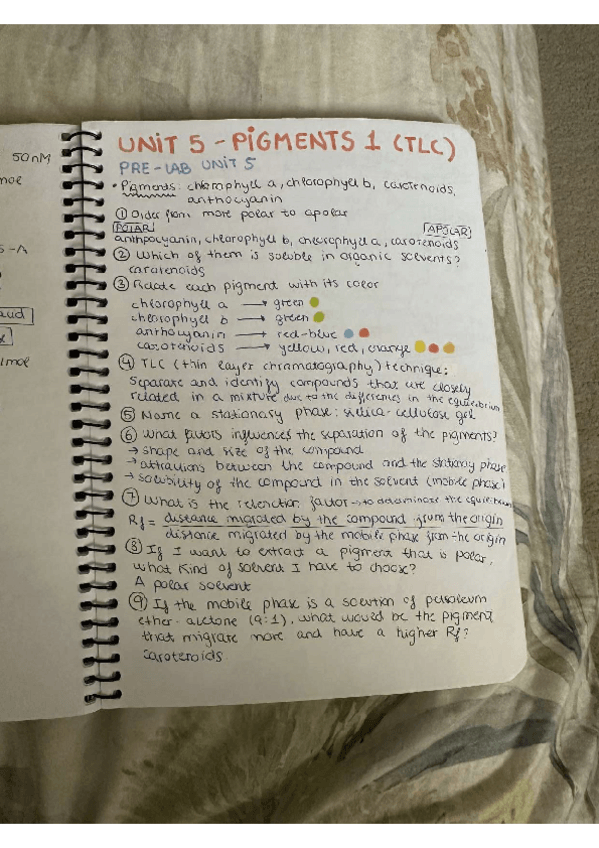 50nM
mol
S-A
aud
1mol
UNIT 5 - PIGMENTS 1 (TLC)
PRE-LAB UNIT 5
• Pigments: chlorophyll a, chlorophyll b, carotenoids,
anthocyanin
① Order from more polar to apolar
POLAR APOLAR
anthocyanin, chlorophyll b, chlorophyll a, carotenoids
② Which of them is soluble in organic solvents?
carotenoids
③ Relate each pigment with its color
chlorophyll a → green
chlorophyll b → green
anthocyanin → red-blue
carotenoids → yellow, red, orange
④ TLC (thin layer chromatography) technique:
Separate and identify compounds that are closely
related in a mixture due to the differences in the equilibrium
⑤ Name a stationary phase: sillica-cellulose gel
⑥ What factors influences the separation of the pigments?
→ shape and size of the compound
→ attractions between the compound and the stationary phase
→ solubility of the compound in the solvent (mobile phase)
⑦ What is the retenction factor → to determinate the equilibrium
Rf = distance migrated by the compound from the origin
distance migrated by the mobile phase from the origin
⑧ If I want to extract a pigment that is polar,
what kind of solvent I have to choose?
A polar solvent
⑨ If the mobile phase is a solution of petroleum
ether-acetone (9:1), what would be the pigment
that migrate more and have a higher Rf?
carotenoids